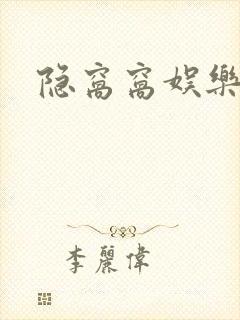 隐窝窝娱樂
李麗偉